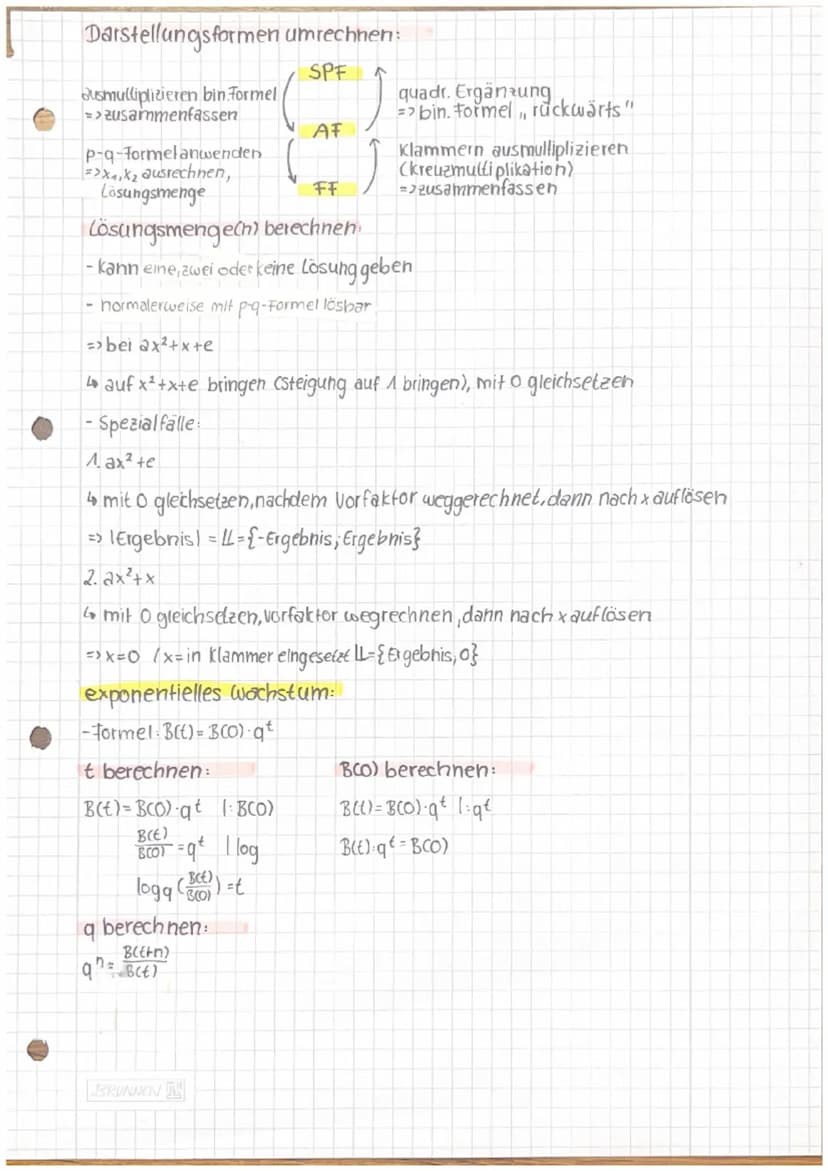 Darstellungsformen umrechnen:
SPF
ausmultiplizieren bin. Formel
=> zusammenfassen
quadr. Ergänzung
=> bin. Formel „rückwärts"
AF
p-q-Formel anwenden
=> x₁, x₂ ausrechnen,
Lösungsmenge
Klammern ausmultiplizieren
(Kreuzmultiplikation)
=> zusammenfassen
FF
Lösungsmenge(n) berechnen:
- kann eine, zwei oder keine Lösung geben
- normalerweise mit p-q-Formel lösbar
=> bei ax²+x+e
↳ auf x²+x+e bringen (Steigung auf 1 bringen), mit 0 gleichsetzen
- Spezialfälle:
1. ax²+e
↳ mit 0 glechsetzen, nachdem Vorfaktor weggerechnet, dann nach x auflösen
=> |Ergebnis| = 𝕃={-Ergebnis; Ergebnis}
2. ax²+x
↳ mit 0 gleichsetzen, Vorfaktor wegrechnen, dann nach x auflösen
=> x=0 / x= in Klammer eingesetzt 𝕃={Ergebnis, 0}
exponentielles Wachstum:
- Formel: B(t) = B(0)·qᵗ
t berechnen:
B(t) = B(0)·qᵗ |:B(0)
B(t)/B(0) = qᵗ | log
log q (B(t)/B(0)) = t
B(0) berechnen:
B(t) = B(0)·qᵗ |:qᵗ
B(t):qᵗ = B(0)
q berechnen:
qⁿ = B(t+n)/B(t)
BRUNNEN